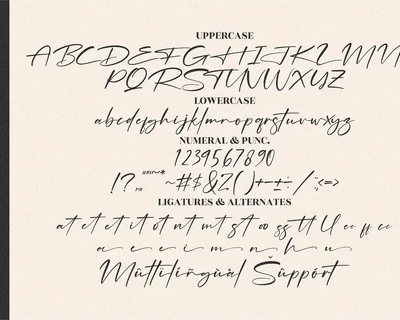 UPPERCASE
ABCDEFGHIJKLMN
OPQRSTUVWXYZ
LOWERCASE
abcdefghijklmnopqrstuvwxyz
NUMERAL & PUNC.
1234567890
!? ~#$&Z()+-±:/ <=>
LIGATURES & ALTERNATES
at et et it ot nt mt st oo ss tt ll ee ff ee
a e e i m n h u
Mûttilíñgùàl Šûppört